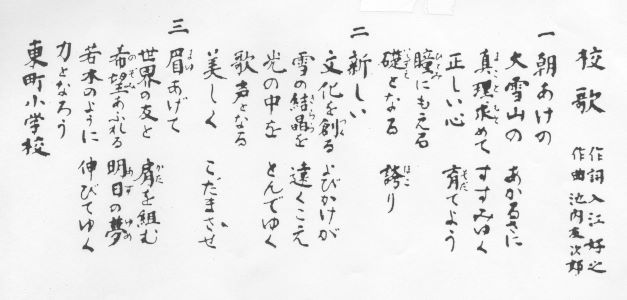 校歌
作詞 入江好之
作曲 池内友次郎
一 朝あけの
大雪山の あかるさに
真理求めて すすみゆく
正しい心 育てよう
瞳にもえる
礎となる 誇り
二 新しい
文化を創る よびかけが
雪の結晶を 遠くこえ
光の中を とんでゆく
歌声となる
美しく こだまさせ
三 眉あげて
世界の友と 肩を組む
希望あふれる 明日の夢
若木のように 伸びてゆく
力となろう
東町小学校